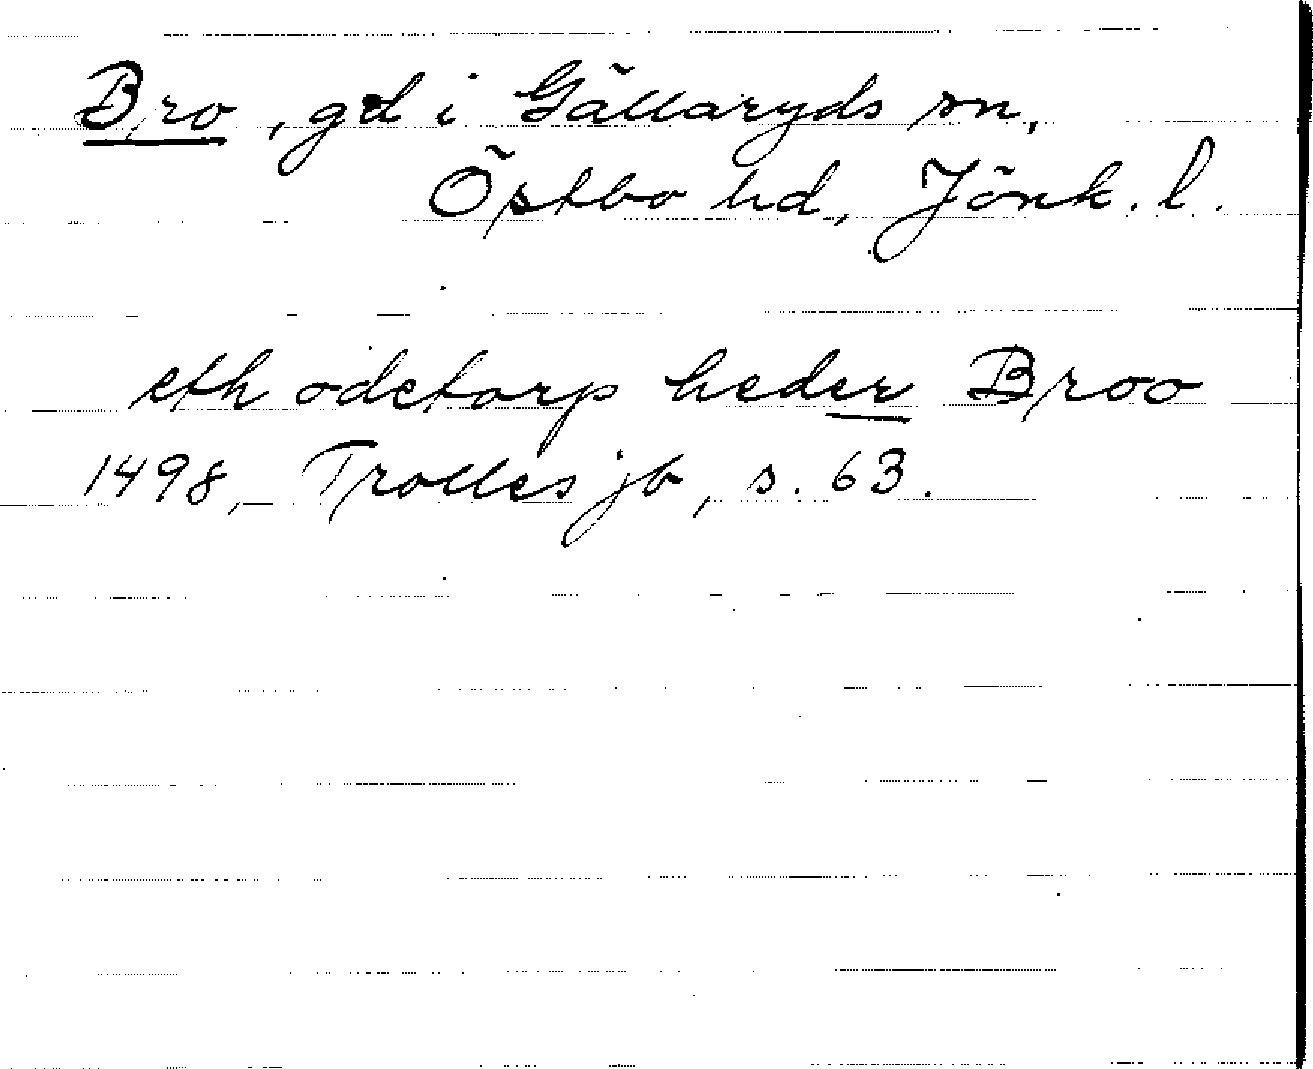 Bro, gd i Gällaryds sn,
Östbo hd, Jönk. l.
eth ödetorp heder Broo
1498, Trolles jb, s. 63.